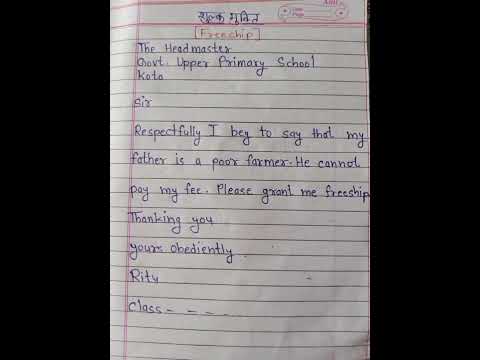 शुल्क मुक्ति
[Freeship]
The Headmaster
Govt. Upper Primary School
Kota
Sir
Respectfully I beg to say that my
father is a poor farmer. He cannot
pay my fee. Please grant me freeship
Thanking you
yours obediently
Ritu
Class - - - -